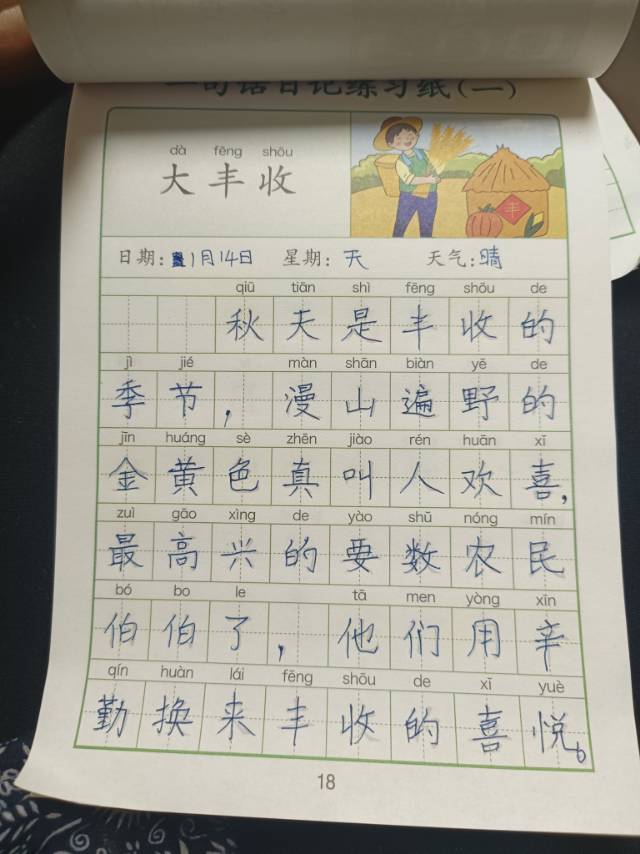 一句话日记练习纸(一)
dà fēng shōu
大丰收
丰
日期: 1月14日 星期: 天 天气: 晴
qiū tiān shì fēng shōu de
秋天是丰收的
jì jié màn shān biàn yě de
季节,漫山遍野的
jīn huáng sè zhēn jiào rén huān xǐ
金黄色真叫人欢喜,
zuì gāo xìng de yào shǔ nóng mín
最高兴的要数农民
bó bo le tā men yòng xīn
伯伯了,他们用辛
qín huàn lái fēng shōu de xǐ yuè
勤换来丰收的喜悦。
18